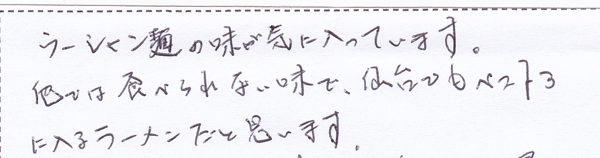 ラーシャン麺の味が気に入っています。
他では食べられない味で、仙台でもベスト3
に入るラーメンだと思います。